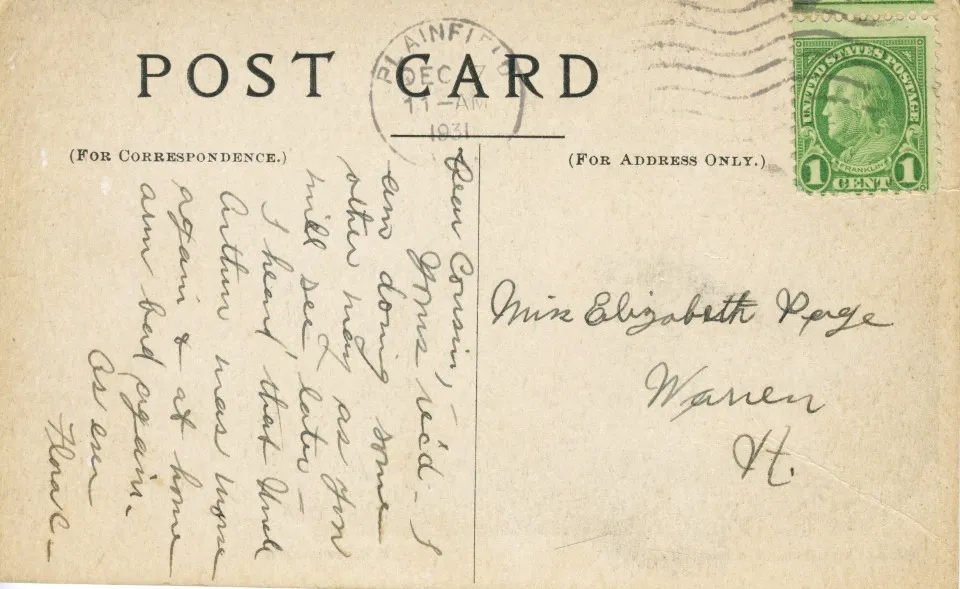 POST CARD
PLAINFIELD
DEC 7
11-AM
1931
UNITED STATES POSTAGE
FRANKLIN
1 CENT 1
(FOR CORRESPONDENCE.)
(FOR ADDRESS ONLY.)
Dear Cousin, –
Yours rec'd – I
am doing some
other way as you
will see later –
I heard that Uncle
Arthur was worse
again & at home
arm bad again.
As ever
Flora C –
Miss Elizabeth Page
Warren
H.